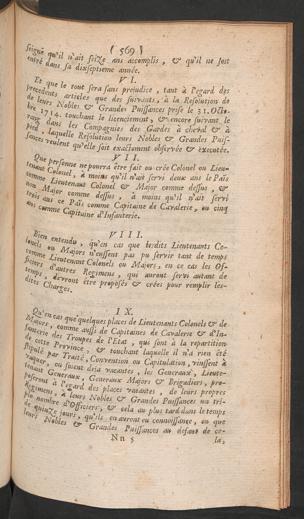 ( 569 )
seigne qu'il n'ait seize ans accomplis, & qu'il ne soit
entré dans sa dixseptieme année.
VI.
Et que le tout sera sans prejudice, tant à l'egard des
precedents articles que des suivants, à la Resolution de
de leurs Nobles & Grandes Puissances prise le 31. Octo-
bre 1714. touchant le licenciement, & encore suivant le
rang dans les Compagnies des Gardes à cheval & à
pied, laquelle Resolution leurs Nobles & Grandes Puis-
sances veulent qu'elle soit exactement observée & executée.
VII.
Que personne ne pourra être fait ou crée Colonel ou Lieu-
tenant Colonel, à moins qu'il n'ait servi deux ans le Païs
comme Lieutenant Colonel & Major comme dessus, &
non Major comme dessus, à moins qu'il n'ait servi
trois ans ce Païs comme Capitaine de Cavalerie, ou cinq
ans comme Capitaine d'Infanterie.
VIII.
Bien entendu, qu'en cas que lesdits Lieutenants Co-
lonels ou Majors n'eussent pas pu servir tant de temps
comme Lieutenant Colonels ou Majors, en ce cas les Of-
ficiers d'autres Regimens, qui auront servi autant de
temps, devront être proposés & crées pour remplir les-
dites Charges.
IX.
Qu'en cas que quelques places de Lieutenants Colonels & de
Majors, comme aussi de Capitaines de Cavalerie & d'In-
fanterie des Troupes de l'Etat, qui sont à la repartition
de cette Province, & touchant laquelle il n'a rien été
stipulé par Traité, Convention ou Capitulation, vinssent à
vaquer, ou fussent deja vacantes, les Generaux, Lieute-
nant Generaux, Generaux Majors & Brigadiers, pro-
poseront à l'egard des places vacantes, de leurs propres
Regimens, à leurs Nobles & Grandes Puissances un tri-
ple nombre d'Officiers, & cela au plus tard dans le temps
de quinze jours, qu'ils en auront eu connoissance, ou que
leurs Nobles & Grandes Puissances au defaut de ce-
Nn 5 la,